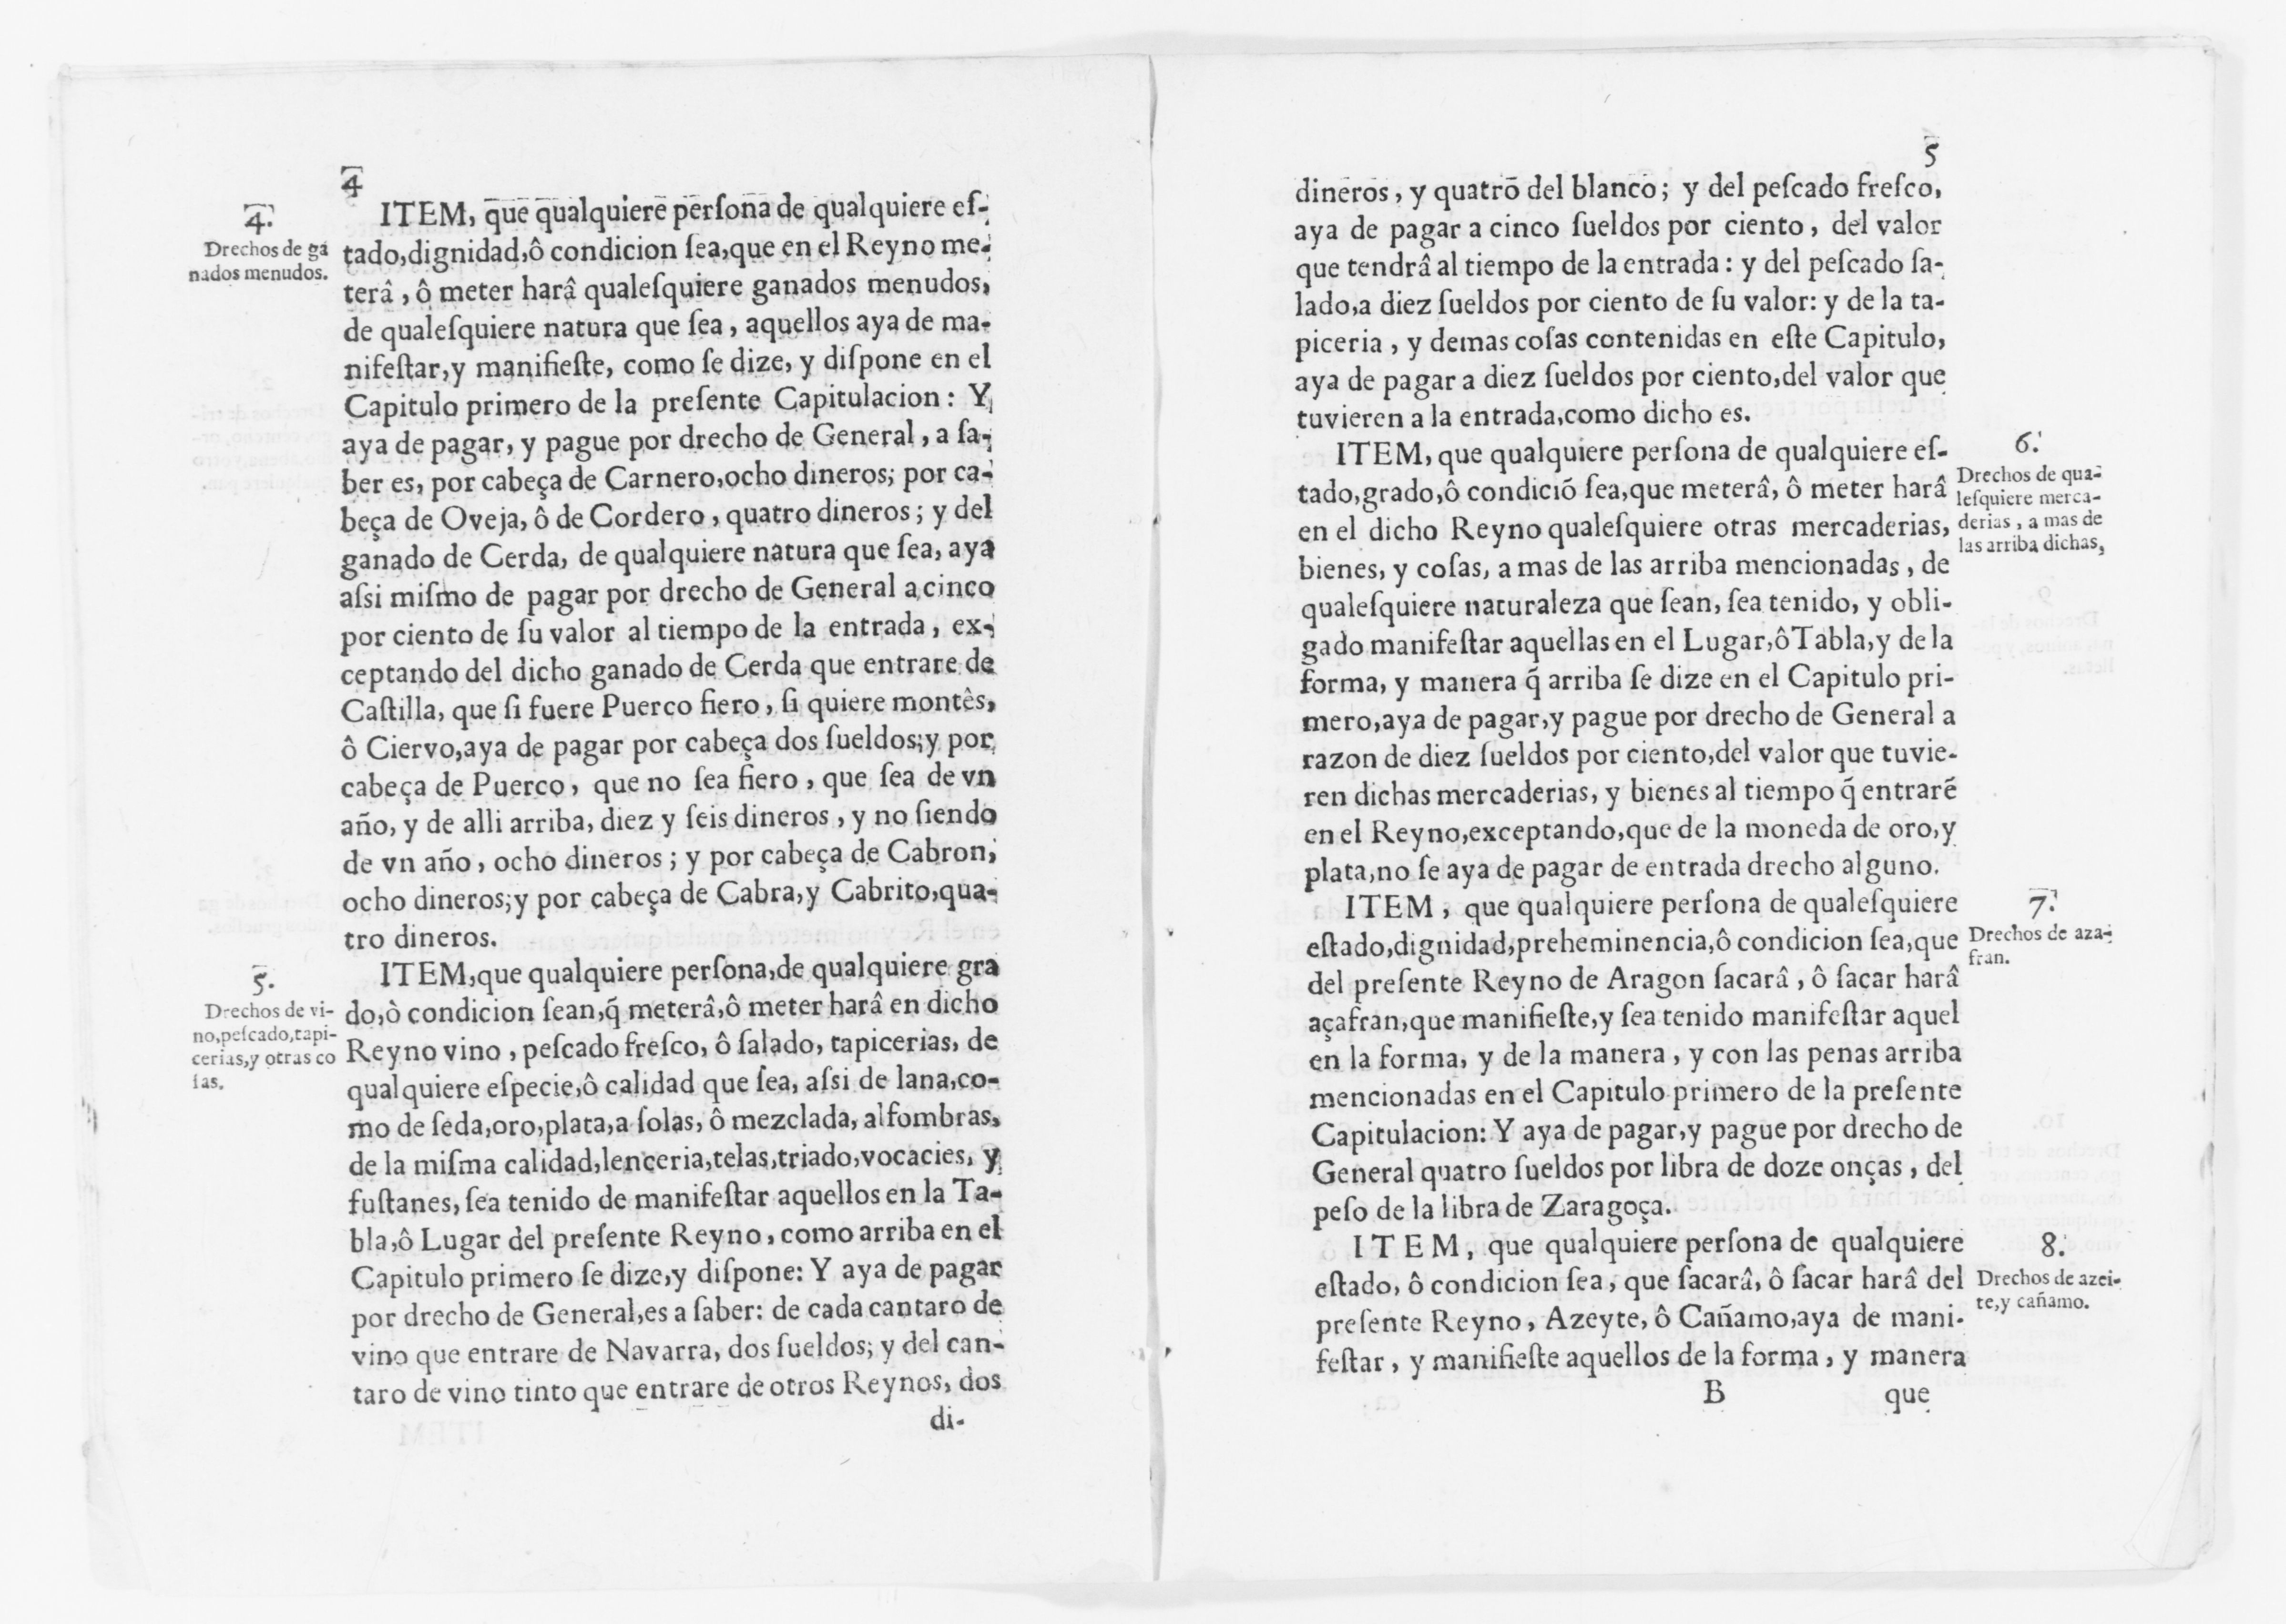 4
4.
Drechos de ga
nados menudos.
ITEM, que qualquiere perſona de qualquiere eſ-
tado,dignidad,ô condicion ſea,que en el Reyno me-
terâ, ô meter harâ qualeſquiere ganados menudos,
de qualeſquiere natura que ſea, aquellos aya de ma-
nifeſtar,y manifieſte, como ſe dize, y diſpone en el
Capitulo primero de la preſente Capitulacion: Y
aya de pagar, y pague por drecho de General, a ſa-
ber es, por cabeça de Carnero,ocho dineros; por ca-
beça de Oveja, ô de Cordero, quatro dineros; y del
ganado de Cerda, de qualquiere natura que ſea, aya
aſsi miſmo de pagar por drecho de General a cinco
por ciento de ſu valor al tiempo de la entrada, ex-
ceptando del dicho ganado de Cerda que entrare de
Caſtilla, que ſi fuere Puerco fiero, ſi quiere montês,
ô Ciervo,aya de pagar por cabeça dos ſueldos;y por
cabeça de Puerco, que no ſea fiero, que ſea de vn
año, y de alli arriba, diez y ſeis dineros, y no ſiendo
de vn año, ocho dineros; y por cabeça de Cabron,
ocho dineros;y por cabeça de Cabra,y Cabrito,qua-
tro dineros.
5.
Drechos de vi-
no,peſcado,tapi-
cerias,y otras co
ſas.
ITEM,que qualquiere perſona,de qualquiere gra
do,ò condicion ſean,q̃ meterâ,ô meter harâ en dicho
Reyno vino, peſcado freſco, ô ſalado, tapicerias, de
qualquiere eſpecie,ô calidad que ſea, aſsi de lana,co-
mo de ſeda,oro,plata,a ſolas, ô mezclada, alfombras,
de la miſma calidad,lenceria,telas,triado,vocacies, y
fuſtanes, ſea tenido de manifeſtar aquellos en la Ta-
bla,ô Lugar del preſente Reyno, como arriba en el
Capitulo primero ſe dize,y diſpone: Y aya de pagar
por drecho de General,es a ſaber: de cada cantaro de
vino que entrare de Navarra, dos ſueldos; y del can-
taro de vino tinto que entrare de otros Reynos, dos
di-
5
dineros, y quatro del blanco; y del peſcado freſco,
aya de pagar a cinco ſueldos por ciento, del valor
que tendrâ al tiempo de la entrada: y del peſcado ſa-
lado,a diez ſueldos por ciento de ſu valor: y de la ta-
piceria, y demas coſas contenidas en eſte Capitulo,
aya de pagar a diez ſueldos por ciento,del valor que
tuvieren a la entrada,como dicho es.
6.
Drechos de qua-
leſquiere merca-
derias, a mas de
las arriba dichas,
ITEM, que qualquiere perſona de qualquiere eſ-
tado,grado,ô condiciõ ſea,que meterâ, ô meter harâ
en el dicho Reyno qualeſquiere otras mercaderias,
bienes, y coſas, a mas de las arriba mencionadas, de
qualeſquiere naturaleza que ſean, ſea tenido, y obli-
gado manifeſtar aquellas en el Lugar,ô Tabla,y de la
forma, y manera q̃ arriba ſe dize en el Capitulo pri-
mero,aya de pagar,y pague por drecho de General a
razon de diez ſueldos por ciento,del valor que tuvie-
ren dichas mercaderias, y bienes al tiempo q̃ entrarẽ
en el Reyno,exceptando,que de la moneda de oro,y
plata,no ſe aya de pagar de entrada drecho alguno.
7.
Drechos de aza-
fran.
ITEM, que qualquiere perſona de qualeſquiere
eſtado,dignidad,preheminencia,ô condicion ſea,que
del preſente Reyno de Aragon ſacarâ, ô ſacar harâ
açafran,que manifieſte,y ſea tenido manifeſtar aquel
en la forma, y de la manera, y con las penas arriba
mencionadas en el Capitulo primero de la preſente
Capitulacion: Y aya de pagar,y pague por drecho de
General quatro ſueldos por libra de doze onças, del
peſo de la libra de Zaragoça.
8.
Drechos de azei-
te,y cañamo.
ITEM, que qualquiere perſona de qualquiere
eſtado, ô condicion ſea, que ſacarâ, ô ſacar harâ del
preſente Reyno, Azeyte, ô Cañamo,aya de mani-
feſtar, y manifieſte aquellos de la forma, y manera
B
que